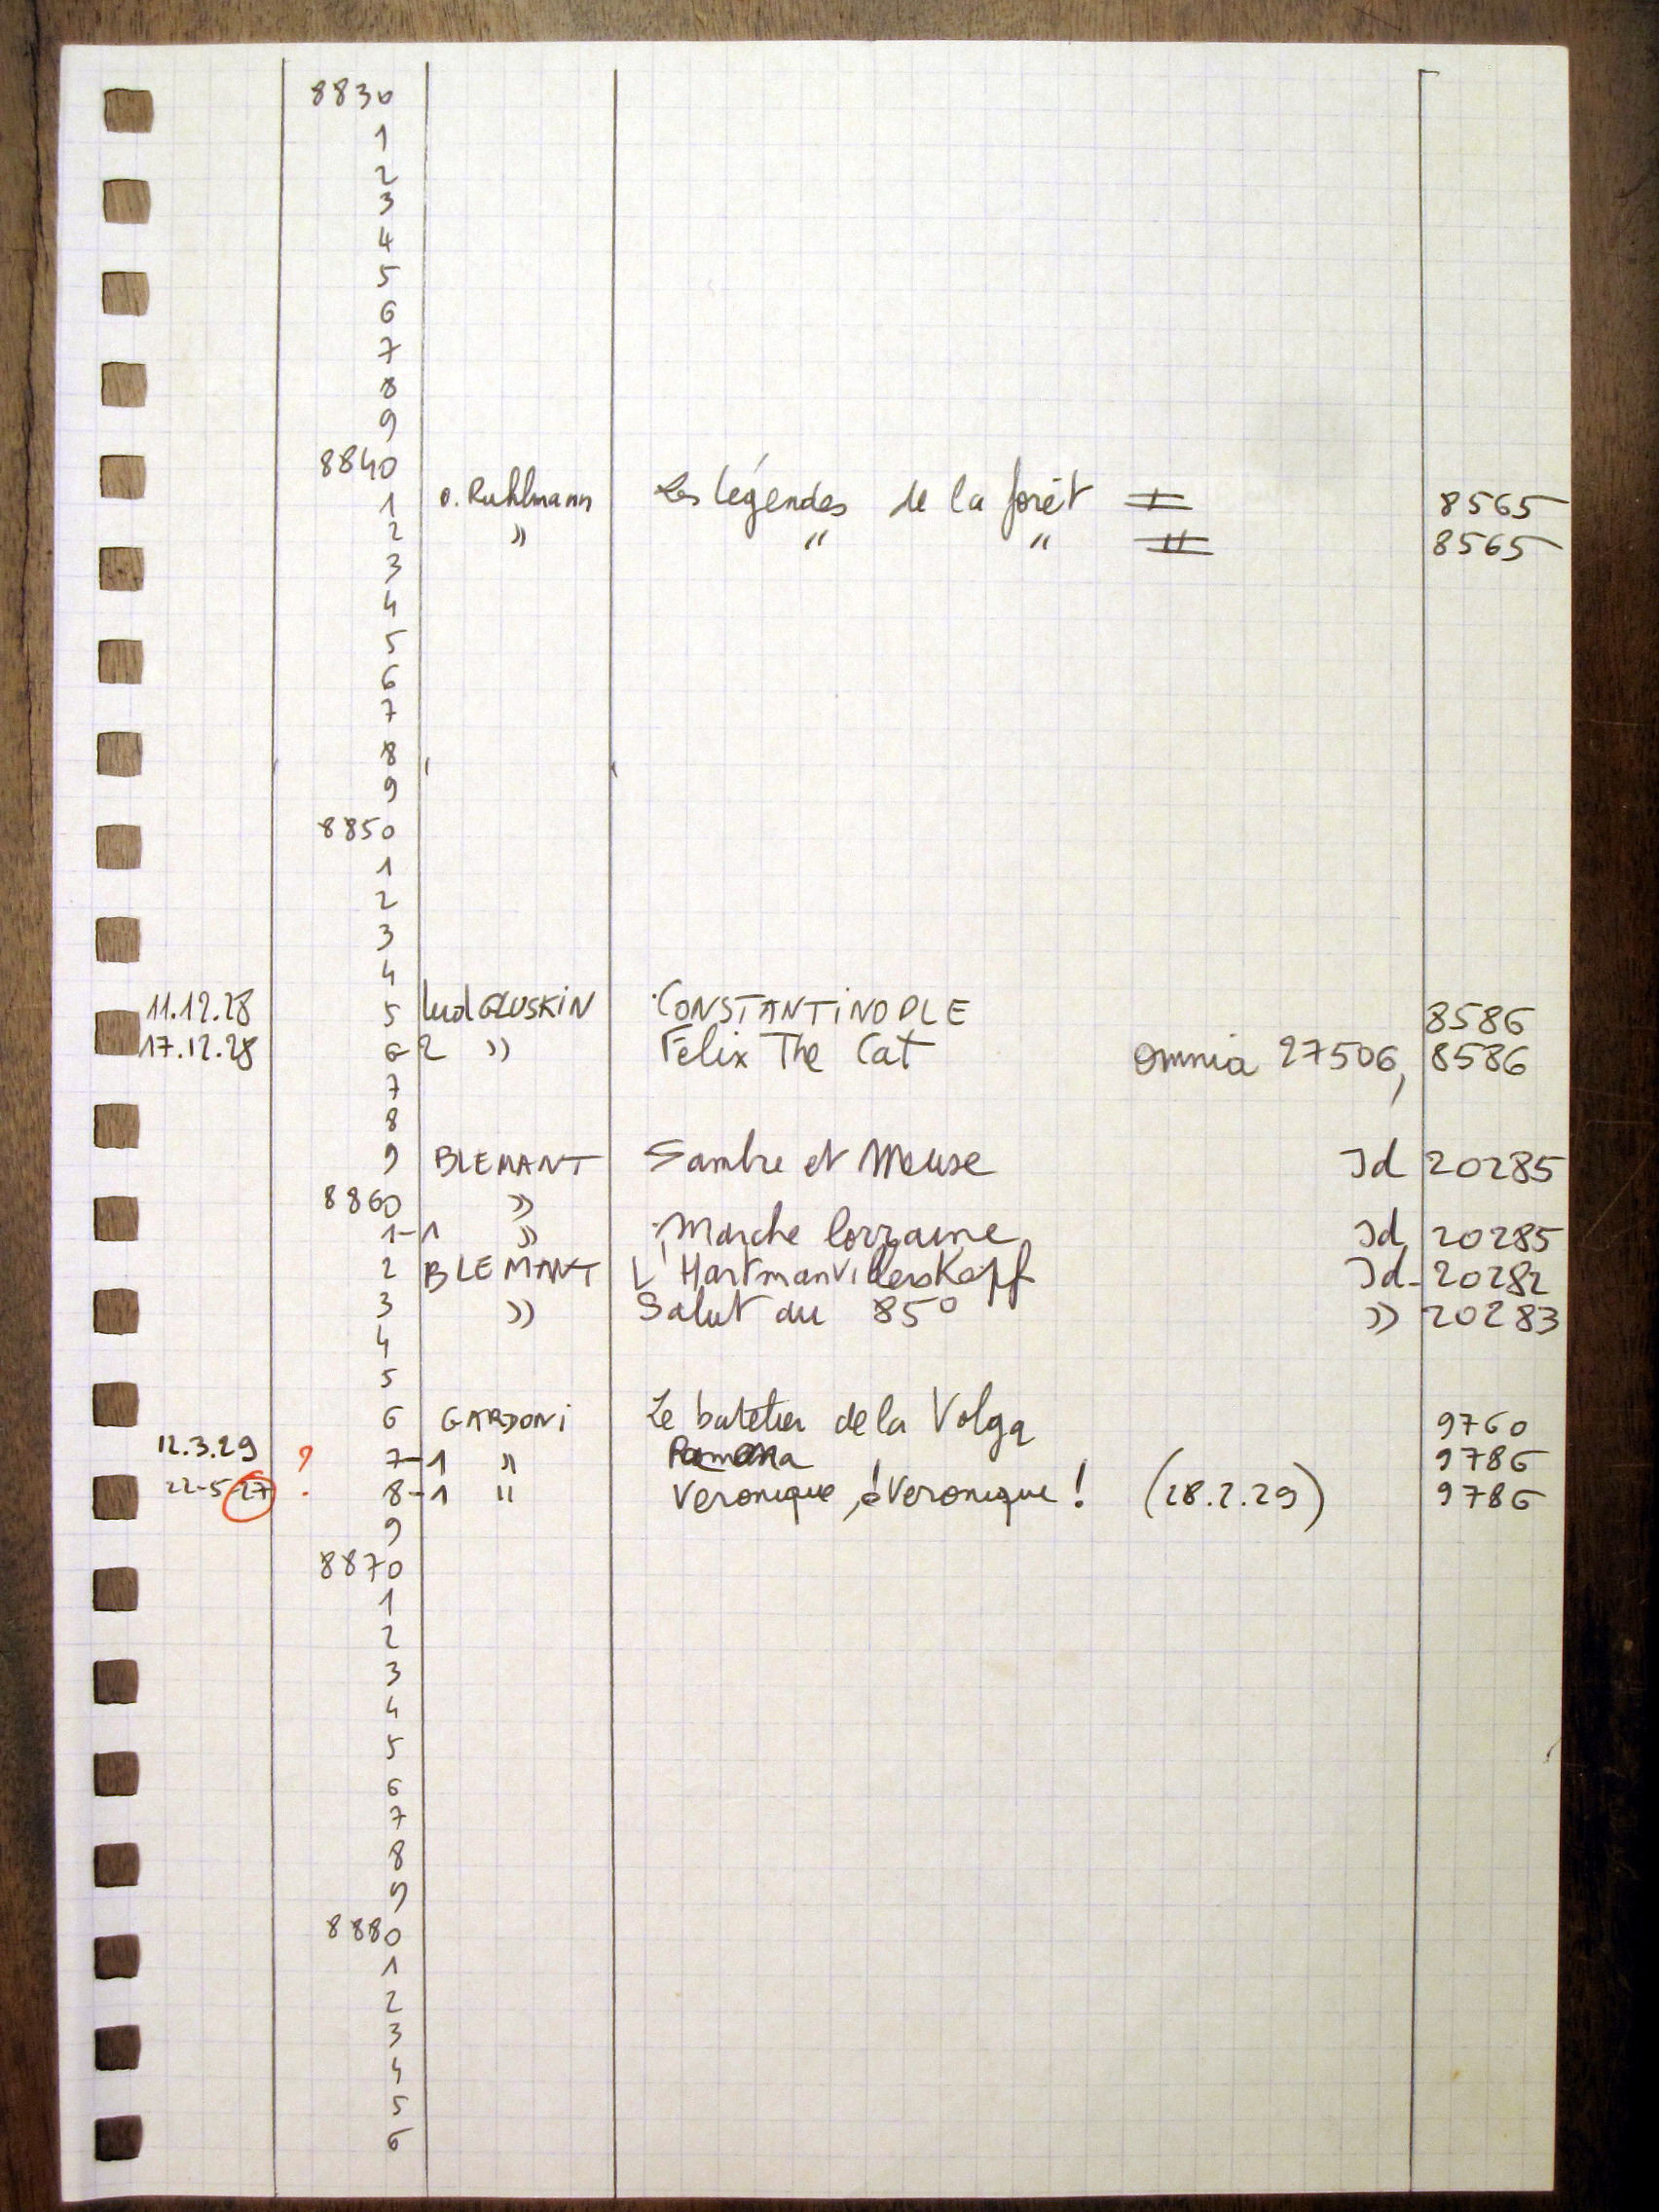 8830
1
2
3
4
5
6
7
8
9
8840
1 O. Ruhlmann Les légendes de la forêt I 8565
2 » " " II 8565
3
4
5
6
7
8
9
8850
1
2
3
4
11.12.28 5 Lud GLUSKIN CONSTANTINOPLE 8586
17.12.28 6-2 » Felix The Cat Omnia 27506, 8586
7
8
9 BLEMANT Sambre et Meuse Id 20285
8860 »
1-1 » Marche lorraine Id 20285
2 BLEMANT L'HartmanVillersKopf Id-20282
3 » Salut au 85° » 20283
4
5
6 GARDONI Le batelier de la Volga 9760
12.3.29 ? 7-1 » Ramona 9786
22-5-27 . 8-1 " Veronique, ô Veronique! (28.2.29) 9786
9
8870
1
2
3
4
5
6
7
8
9
8880
1
2
3
4
5
6